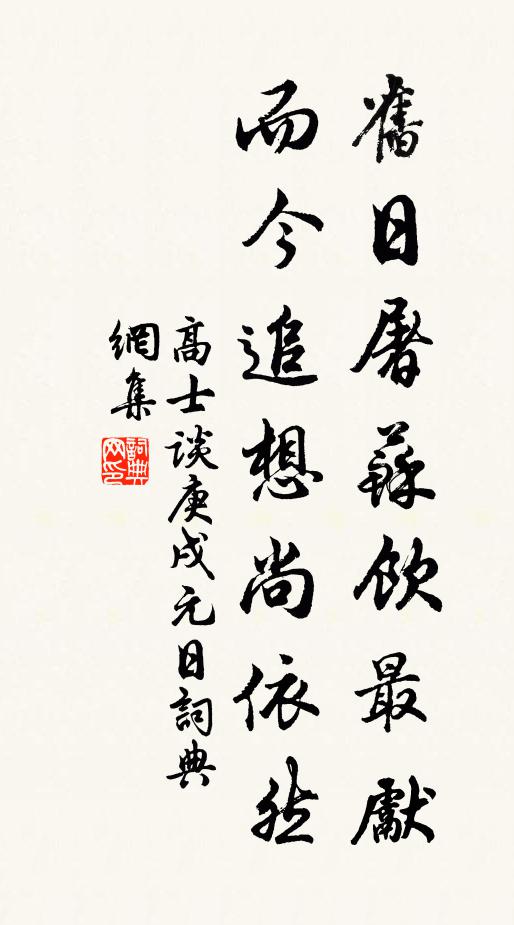 舊日屠蘇飲最獻
而今追想尚依然
高士談庚戌元日詞典
網集
詞典網印